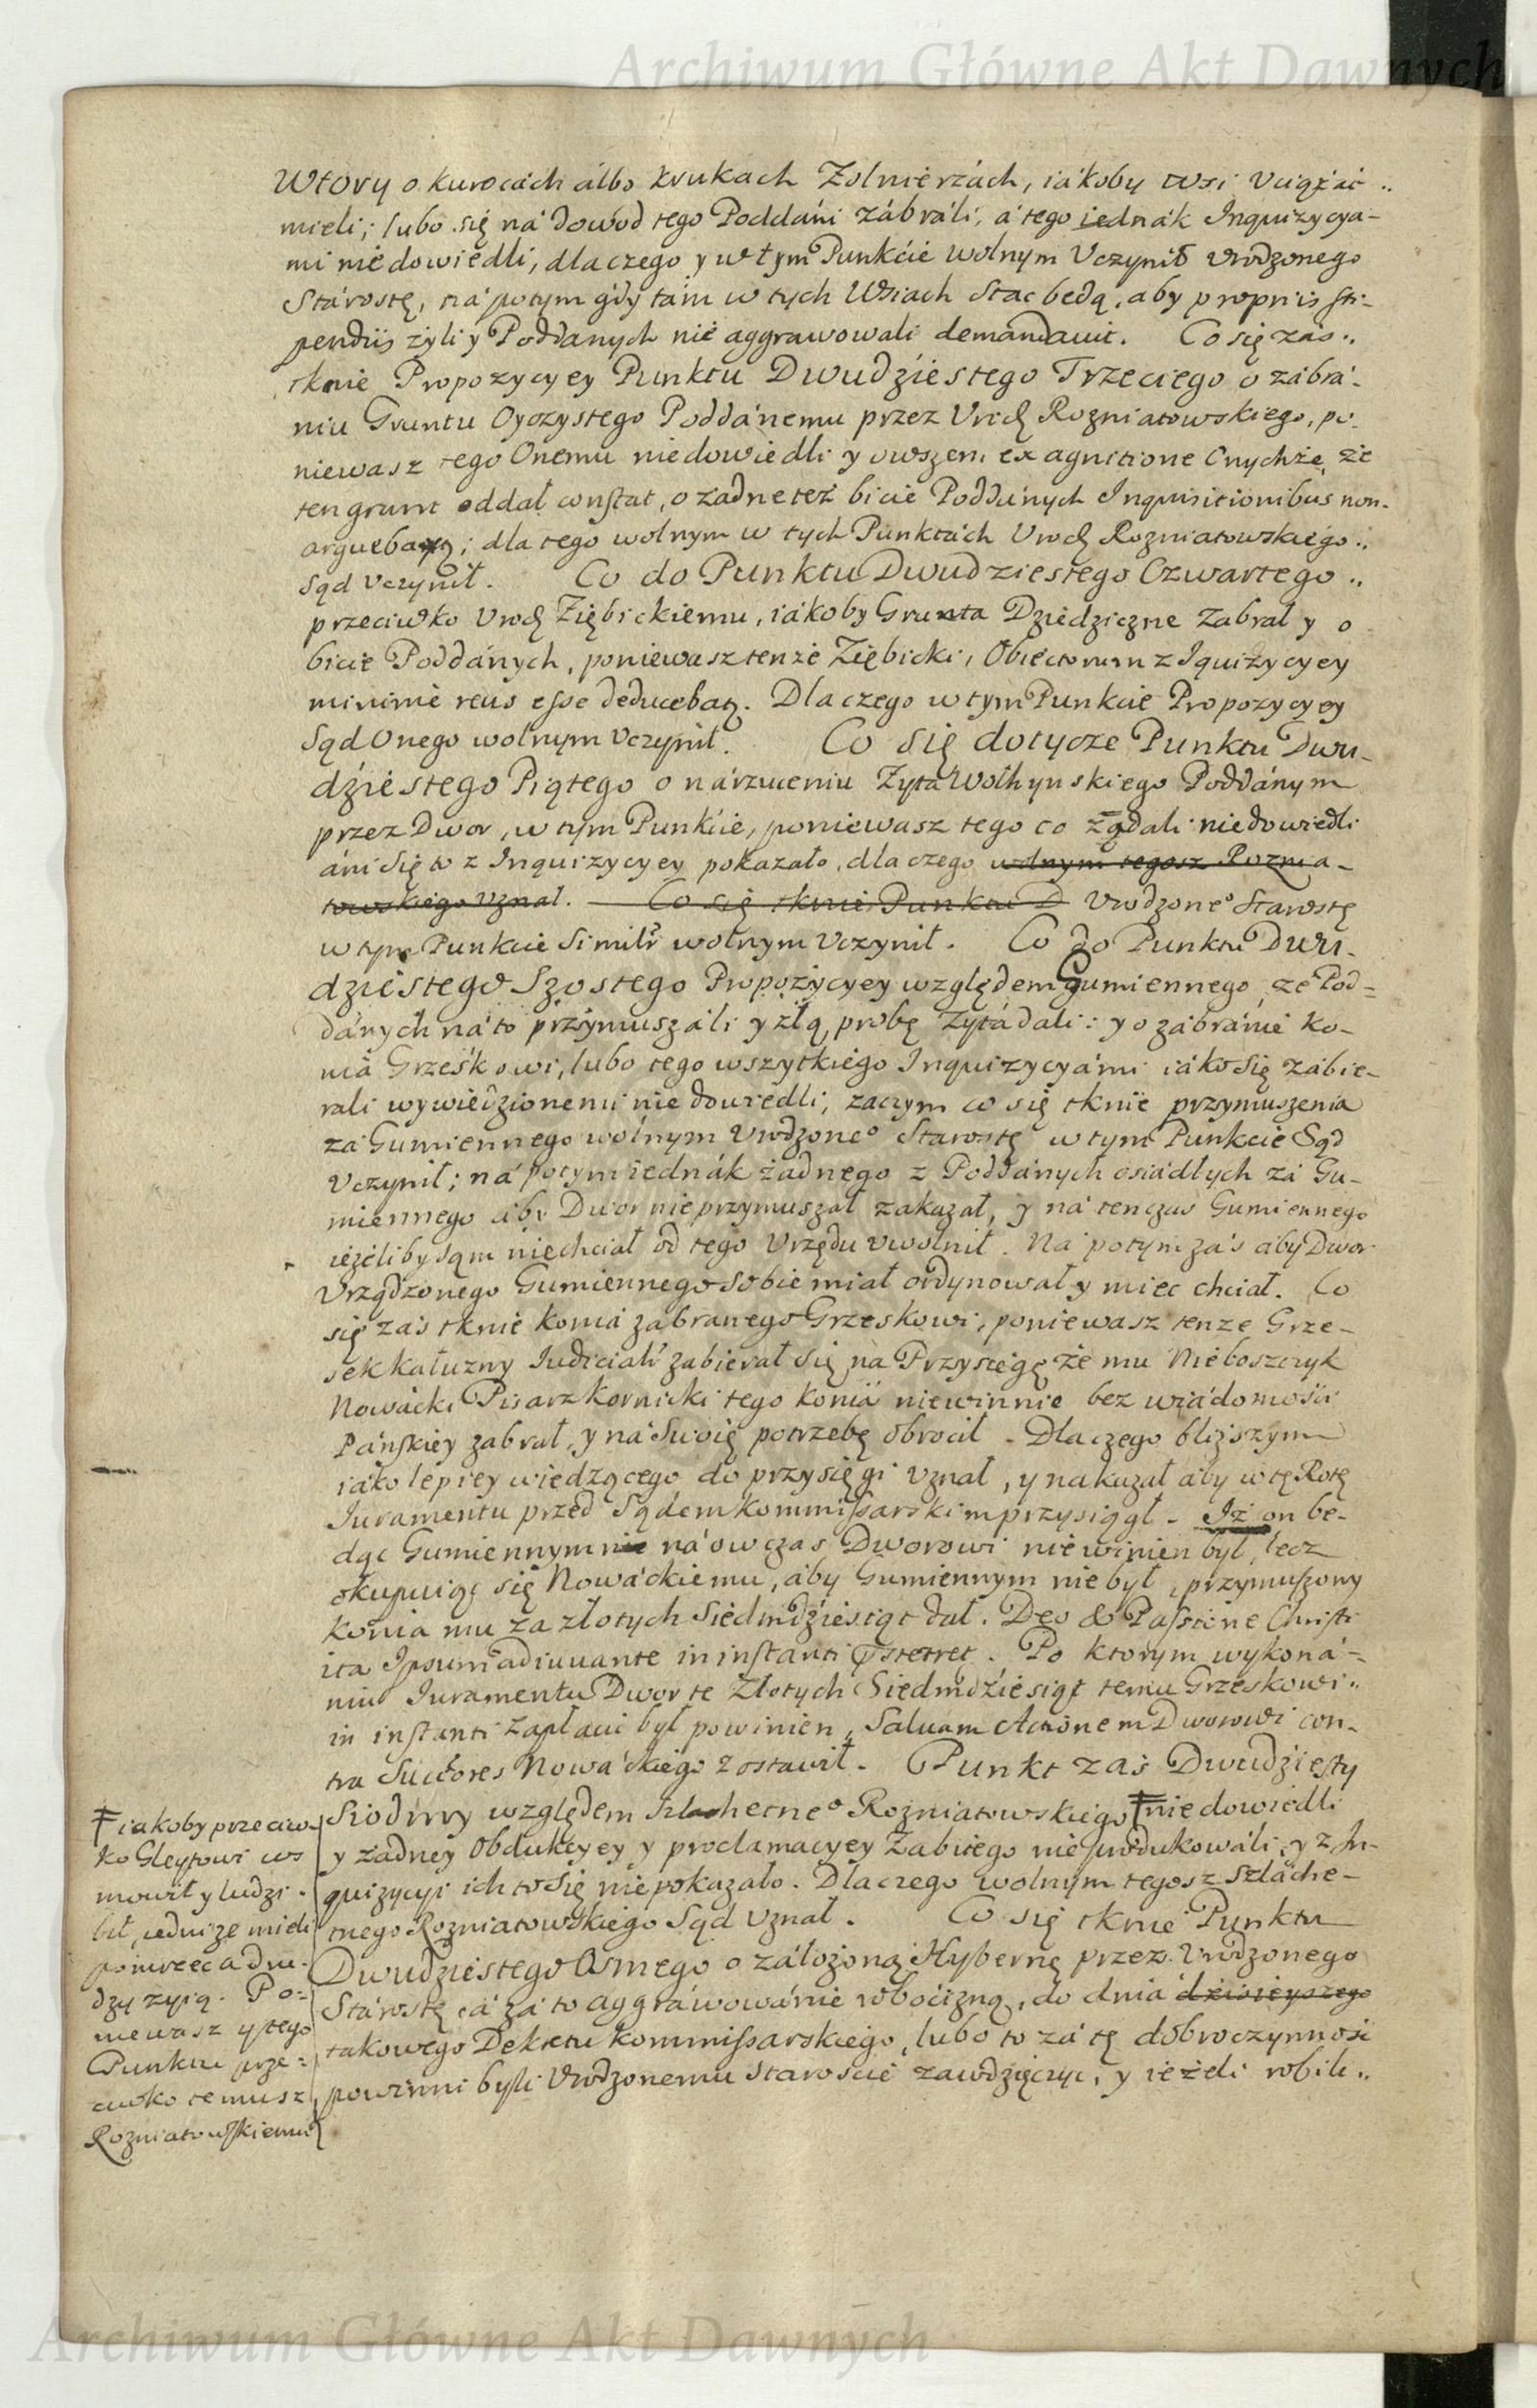 Archiwum Główne Akt Dawnych
Wtory o kurocách álbo krukach Zolnierzách, iákoby wsi Uciążać ..
mieli; lubo się ná dowod tego Poddáni zábráli, á tego iednák Inquizycya-
mi niedowiedli, dlaczego y w tym Punkcie wolnym Uczynił Urodzonego
Stárostę, ná potym gdy tám w tych Wsiach Stac będą, aby propriis sti-
pendiis żyli y Poddanych nie aggrawowali demandavit. Co się zás ..
tknie Propozycyey Punktu Dwudziestego Trzeciego o zábrá-
niu Gruntu Oyczystego Poddánemu przez Urodz Rozniatowskiego, po-
niewasz tego Onemu niedowiedli y owszem ex agnitione Onychże, że
ten grunt oddał constat, o zadne też bicie Poddánych Inquisitionibus non-
arguebatur; dla tego wolnym w tych Punktách Urodz Rozniatowskiego ..
Sąd Uczynił. Co do Punktu Dwudziestego Czwartego ..
przeciwko Urodz Ziębickiemu, iákoby Grunta Dziedziczne Zabrał y o
bicie Poddánych, poniewasz tenże Ziębicki, Obiectorum z Iquizycyey
minime reus esse deducebatur. Dlaczego w tym Punkcie Propozycyey
Sąd Onego wolnym Uczynił. Co się dotycze Punktu Dwu-
dziestego Piątego o nárzuceniu Zyta Wołhynskiego Poddánym
przez Dwor, w tym Punkcie, poniewasz tego co żądali niedowiedli
áni Się to z Inquizycyey pokazało, dlaczego wolnym tegosz Roznia-
towskiego Uznał. Co się tknie Punktu D Urodzoneo Starostę
w tym Punkcie Similr wolnym Uczynił. Co do Punktu Dwu-
dziestego Szostego Propozycyey względem Gumiennego, że Pod=
dánych ná to przymuszáli y złą probę Zytá dali: y o zábránie Ko-
niá Grześkowi, lubo tego wszytkiego Inquizycyámi iáko Się zábie-
rali wywiedzionemi nie dowiedli, zaczym co się tknie przymuszenia
zá Gumiennego wolnym Urodzoneo Starostę w tym Punkcie Sąd
Uczynił; ná potym iednák żadnego z Poddánych osiádłych zá Gu-
miennego aby Dwor nie przymuszał zakazał, y ná ten czas Gumiennego
ieżeliby sąm niechciał od tego Urzędu uwolnił. Ná potym zás aby Dwor
Urządzonego Gumiennego Sobie miał ordynował y miec chciał. Co
się zás tknie koniá zabranego Grzeskowi, poniewasz tenze Grze-
sek Kałuzny Iudicialr zabierał Się na Przysięgę że mu Nieboszczyk
Nowácki Pisarz Kornicki tego Koniá niewinnie bez wiádomości
Páńskiey zabrał, y ná Swoię potrzebę obrocił. Dlaczego blizszym
iáko lepiey wiedzącego do przysięgi Uznał, y nakazał aby w tę Rotę
Iuramentu przed Sądem Kommissarskim przysiągł. Iż on be-
dąc Gumiennym nie ná ow czas Dworowi nie winien był, lecz
okupuiąc się Nowáckiemu, aby Gumiennym nie był, przymuszony
konia mu za złotych Siedmdziesiąt dał. Deo & Passione Christi
ita Ipsum adiuvante in instanti Pstetret. Po ktorym wykoná=
niu Iuramentu Dwor te Złotych Siedmdziesiąt temu Grzeskowi ..
in instanti Zapłacić był powinien, Salvam Actionem Dworowi con-
tra Succores Nowáckiego Zostawił. Punkt zás Dwudziesty
Siodmy względem Szlachetneo Rozniatowskiego niedowiedli
y żadney Obdukcyey y proclamacyey Zabitego nie produkowáli, y z In-
quizycyi ich to Się nie pokazało. Dlaczego wolnym tegosz Szlache-
tnego Rozniatowskiego Sąd Uznał. Co się tknie Punktu
Dwudziestego Osmego o záłożoną Hybernę przez Urodzonego
Stárostę, á zá to aggráwowánie robocizną, do dniá dzisieyszego
takowego Dekretu Kommissarskiego, lubo to zá tę dobroczynność
powinni byli Urodzonemu Staroscie zawdzięczyc, y ieżeli robili ..
iakoby przeciw-
ko Gleytowi
mowił y ludzi
bił, iedni ze mieli
pomrzec a dru-
dzy zyią. Po=
niewasz y tego
Punktu prze=
ciwko temusz
Rozniatowskiemu
Archiwum Główne Akt Dawnych